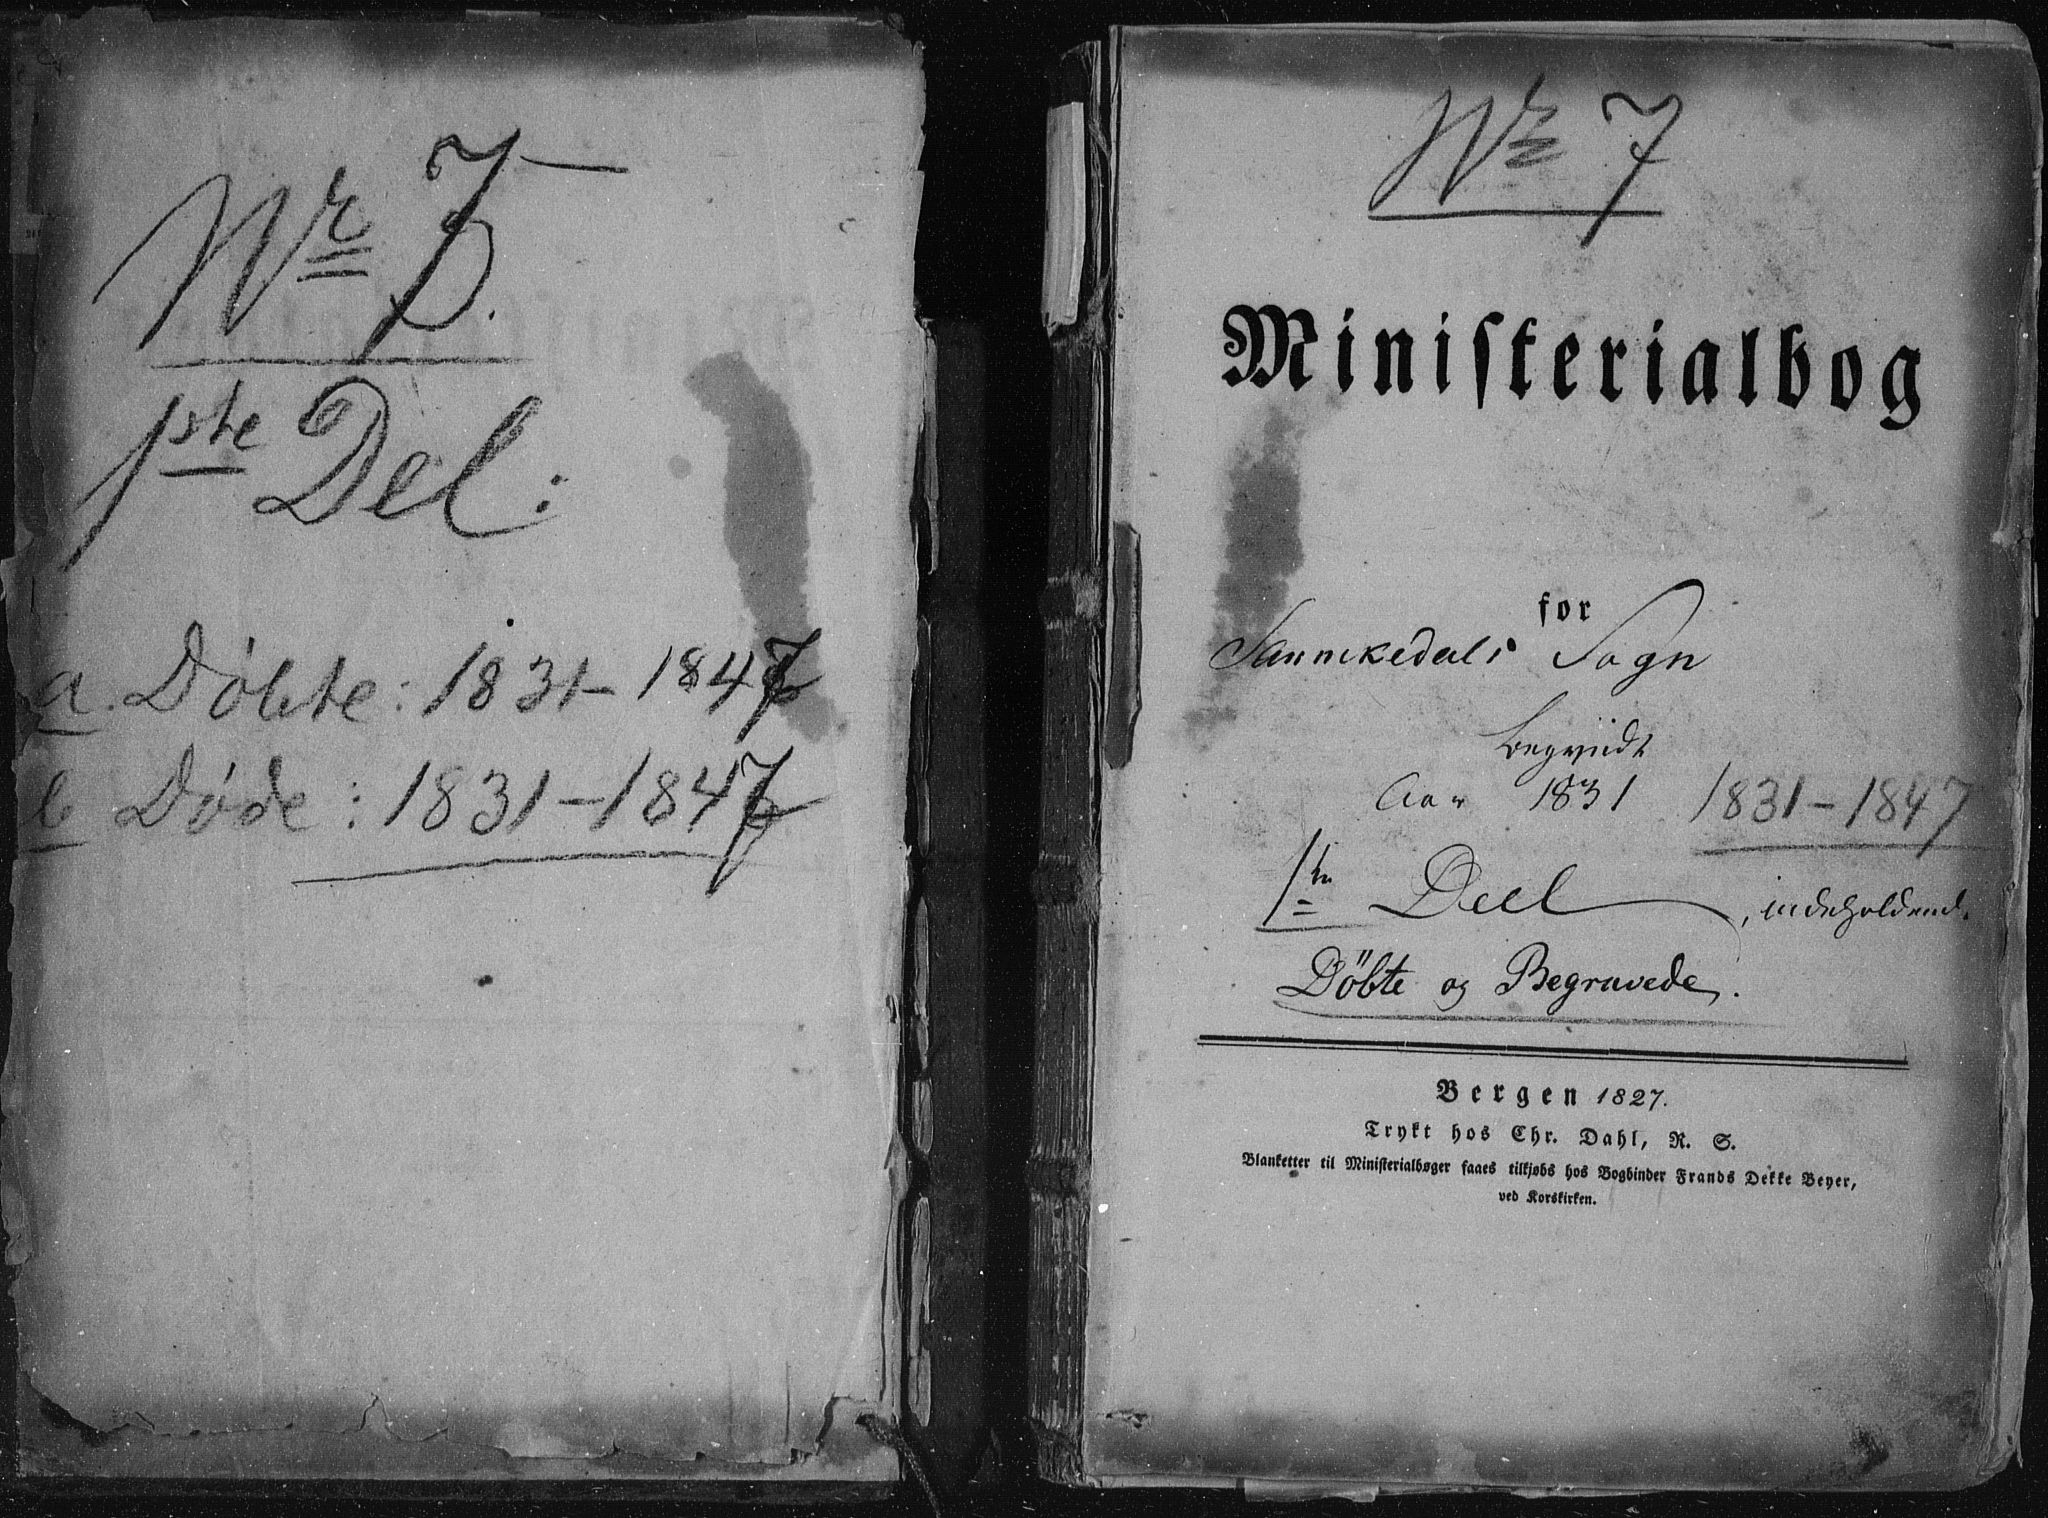 Nr 7.
1ste Del:
a. Döbte: 1831-1847
b Døde: 1831-1847
Nr 7
Ministerialbog
for
Sannikedals Sogn
begyndt
Aar 1831 1831-1847
1ste Deel, indeholdende
Döbte og Begravede.
Bergen 1827.
Trykt hos Chr. Dahl, R. S.
Blanketter til Ministerialbøger faaes tilkjøbs hos Bogbinder Frands Dekke Beyer,
ved Korskirken.